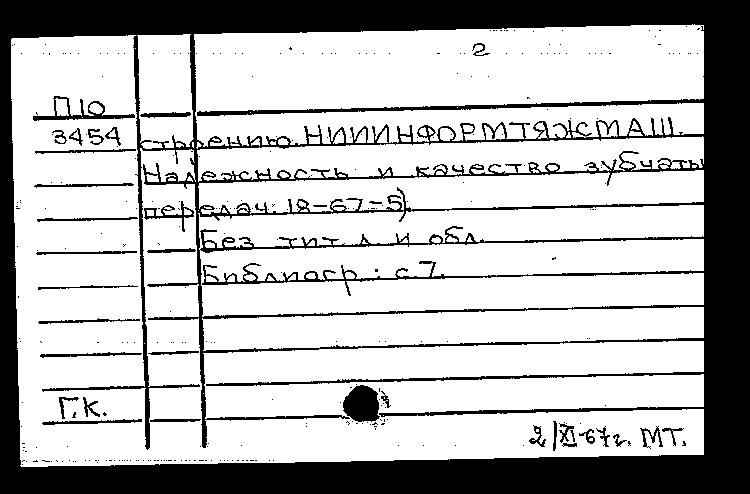 2
П10
3454 строению. НИИИНФОРМТЯЖМАШ.
Надежность и качество зубчаты
передач. 18-67-5).
Без тит. л. и обл.
Библиогр.: с. 7.
Г.К.
2/XI-67г. МТ.